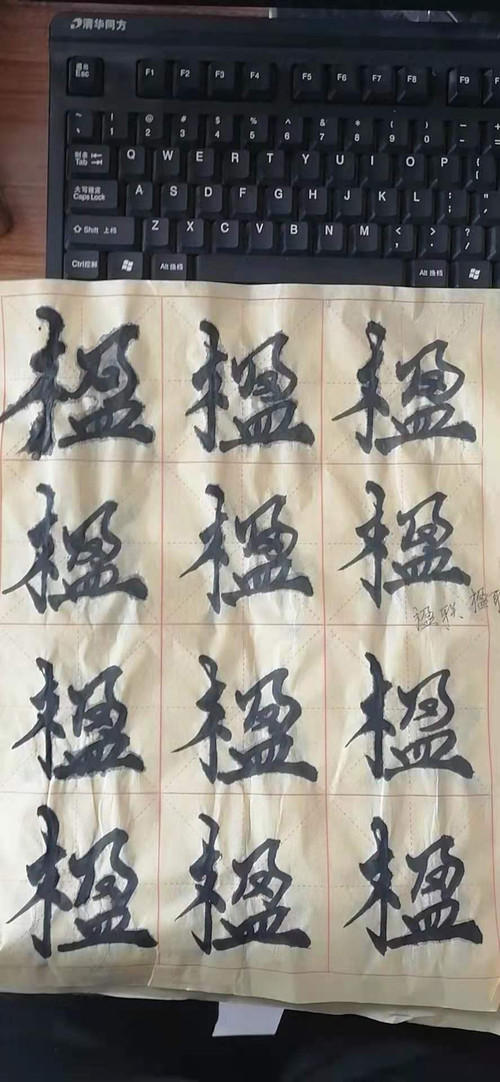 清华同方
退出 Esc F1 F2 F3 F4 F5 F6 F7 F8 F9
~ ! @ # $ % ^ & * ( ) _
` 1 2 3 4 5 6 7 8 9 0 -
制表 Tab Q W E R T Y U I O P {
[
大写锁定 Caps Lock A S D F G H J K L : "
; '
Shift 上档 Z X C V B N M < > ?
, . /
Ctrl控制 Alt 换档 Alt 换档
楹 楹 楹
楹 楹 楹
楹联 楹
楹 楹 楹
楹 楹 楹